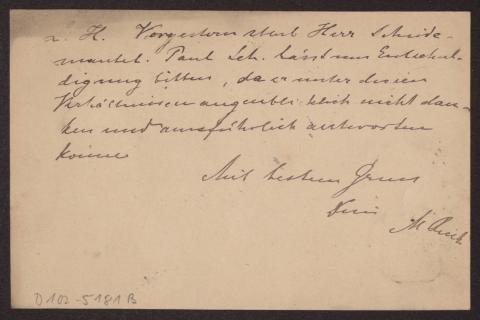 L. H. Vorgestern starb Herr Scheide-
mantel. Paul Sch. lässt um Entschul-
digung bitten, da er unter diesen
Verhältnissen augenblicklich nicht dan-
ken und ausführlich antworten
könne
Mit bestem Gruss
Dein
M
D102-5181B